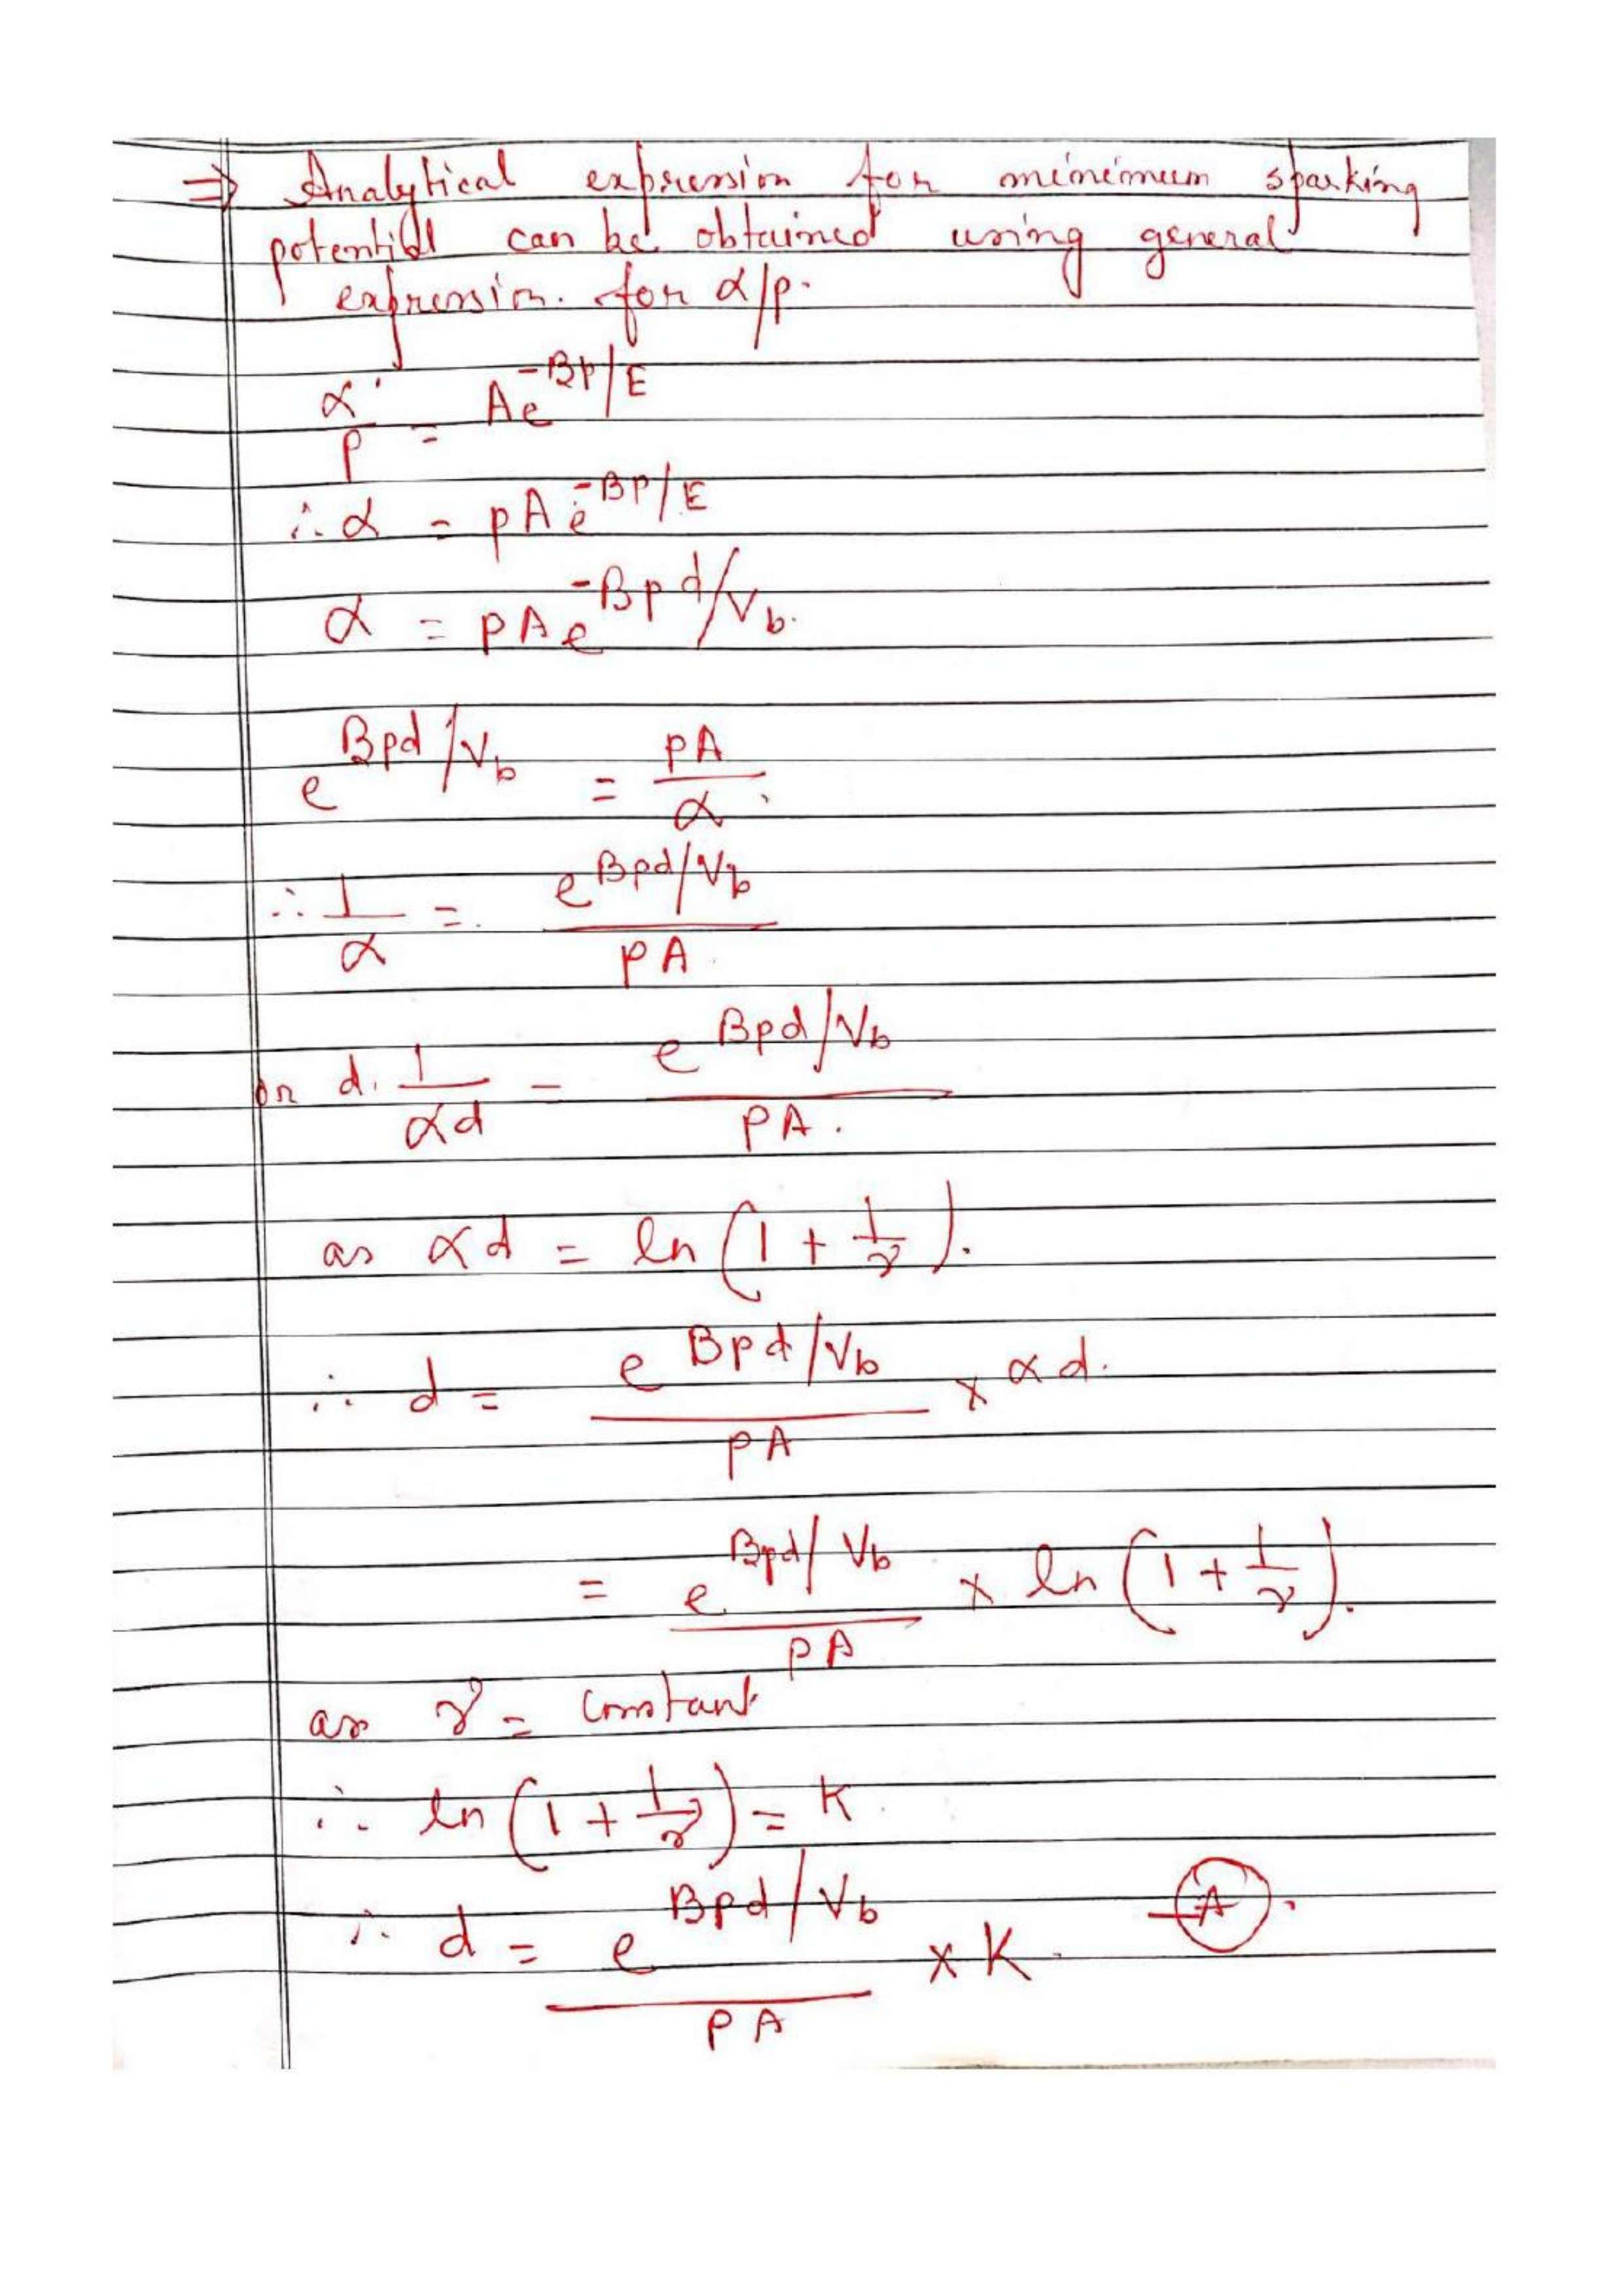 ⇒ Analytical expression for minimum sparking
potential can be obtained using general
expression. for α/p.
α/p = Ae^(-Bp/E)
∴ α = pAe^(-BP/E)
α = PAe^(-Bpd/Vb)
e^(Bpd/Vb) = PA/α
∴ 1/α = e^(Bpd/Vb)/PA
or d. 1/αd = e^(Bpd/Vb)/PA.
as αd = ln(1 + 1/γ).
∴ d = e^(Bpd/Vb)/PA × αd.
= e^(Bpd/Vb)/PA × ln(1 + 1/γ).
as γ = constant
∴ ln(1 + 1/γ) = K
∴ d = e^(Bpd/Vb)/PA × K. —(A).